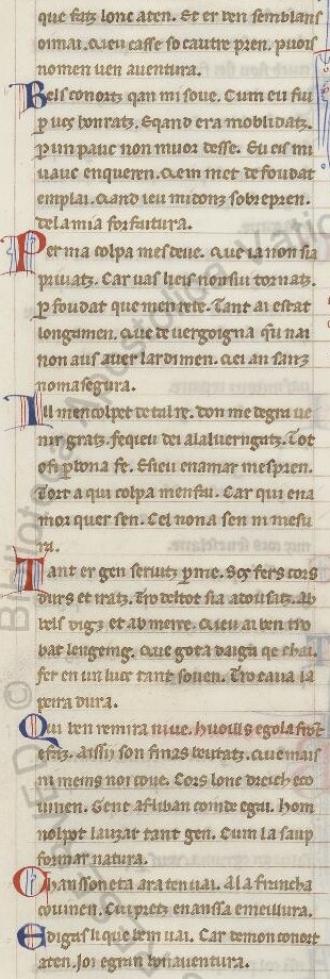 que fatz lonc aten. Et er ben semblans
oimai. Q̃ieu casse so cautre pren. puois
nomen uen auentura.
Bels conortz qan mi soue. Cum eu fui
ꝑ uos honratz. Eqand era moblidatz.
ꝑ un pauc non muor desse. Eu eis mi
uauc enqueren. Q̃iem met de foudat
emplai. Q̃and ieu midonz sobrepren.
dela mia forfaitura.
Per ma colpa mesdeue. Que ia non sia
priuatz. Car uas lieis nonfui tornatz.
ꝑ foudat que men rete. Tant ai estat
longamen. Que de uergoigna q̃u nai
non aus auer lardimen. Qei an sanz
nomasegura.
Ill mencolpet de tal re. don me degra ue
nir gratz. feqieu dei alaluergnatz. Tot
o fi ꝑ bona fe. Esieu enamar mespren.
Tort a qui colpa menfai. Car qui ena
mor quer sen. Cel non a sen ni mesu
ra.
Tant er gen seruitz ꝑ me. Sos fers cors
durs et iratz. Tro deltot sia adousatz. Ab
bels digz et ab merce. Q̃ieu ai ben tro
bat legeing. Que gota daiga qe chai.
fer en un luoc tant souen. Tro caua la
peira dura.
Qui ben remira niue. huoills e gola frõt
e fatz. Aissi son finas beutatz. Que mais
ni meins noi coue. Cors lonc dreich e co
uinen. Gent afliban coinde e gai. hom
nolpot lauzar tant gen. Cum la saup
formar natura.
Chanssoneta ara ten uai. A la francha
couinen. Cui pretz enanssa e meillura.
E digas li que bem uai. Car demon conort
aten. Ioi e gran bonauentura.
© Biblioteca Apostolica Vatic